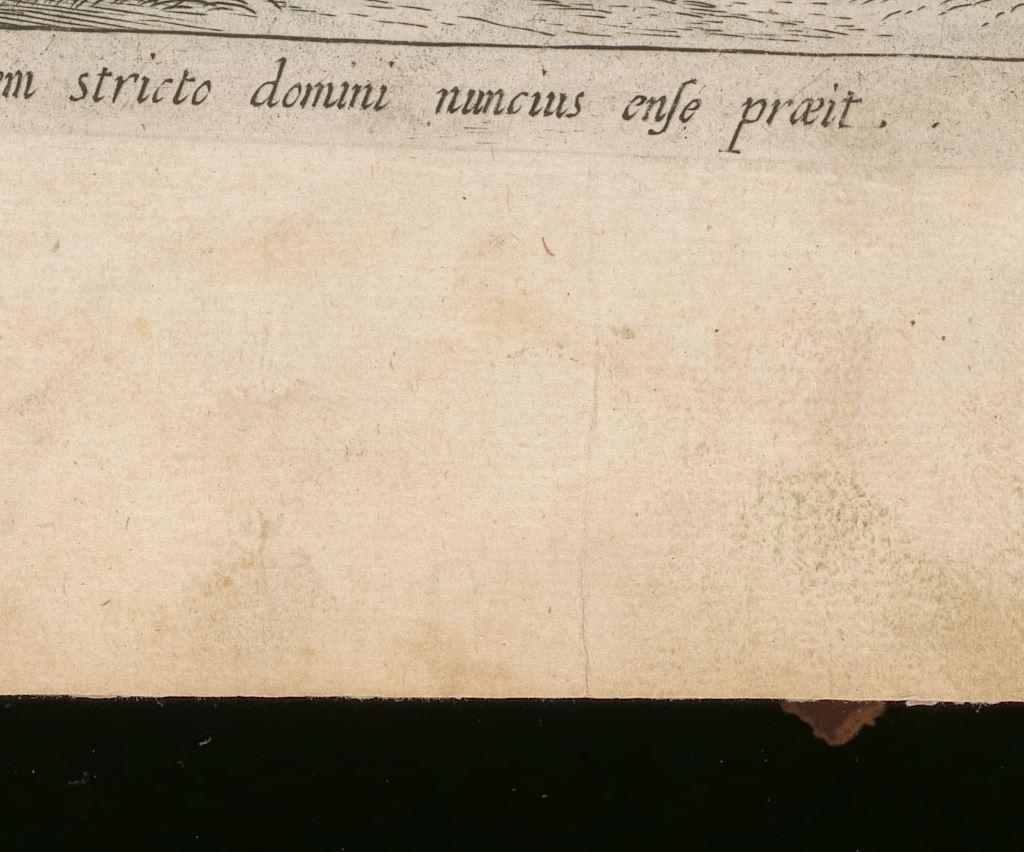 em stricto domini nuncius enſe præit .